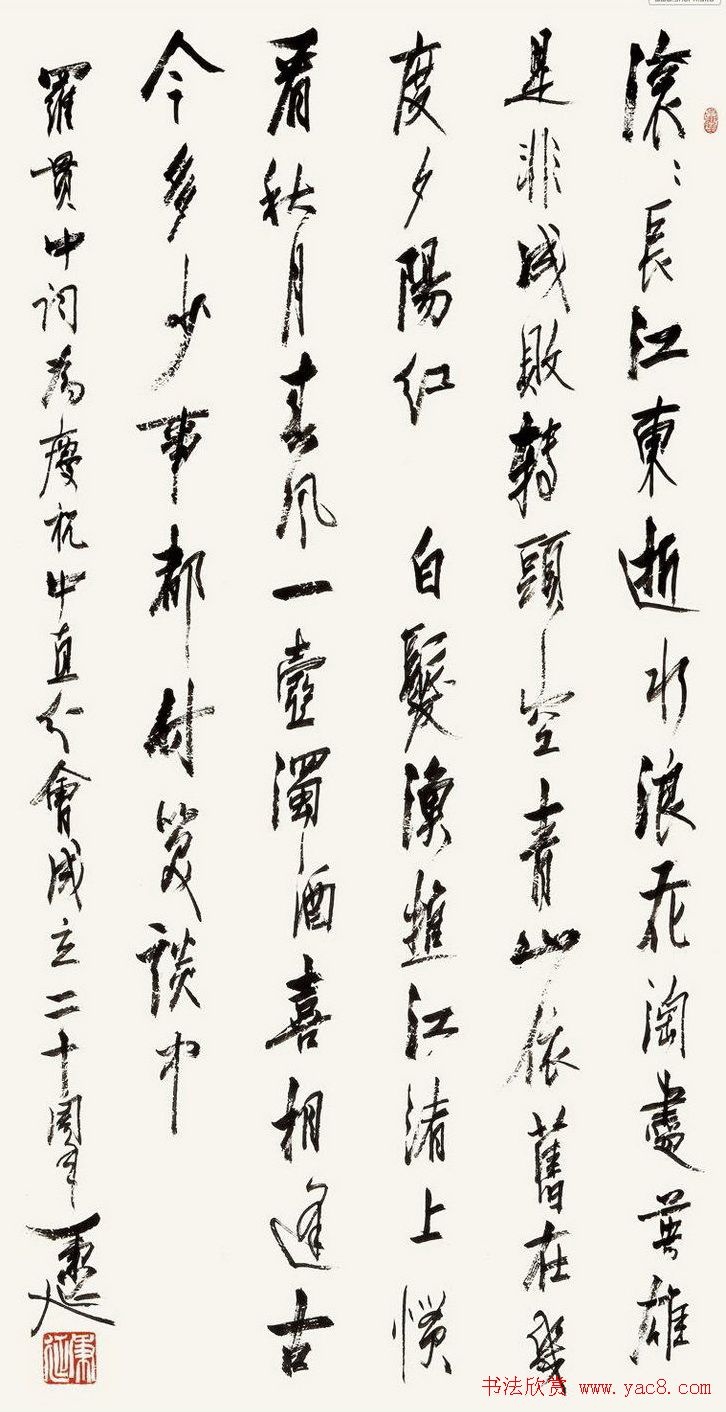 滚〻長江東逝水浪花淘盡英雄
是非成敗轉頭空青山依舊在幾
度夕陽紅 白髮漁樵江渚上慣
看秋月春风一壺濁酒喜相逢古
今多少事都付笑談中
羅貫中词為慶祝中直分會成立二十周年
书法欣赏 www.yac8.com